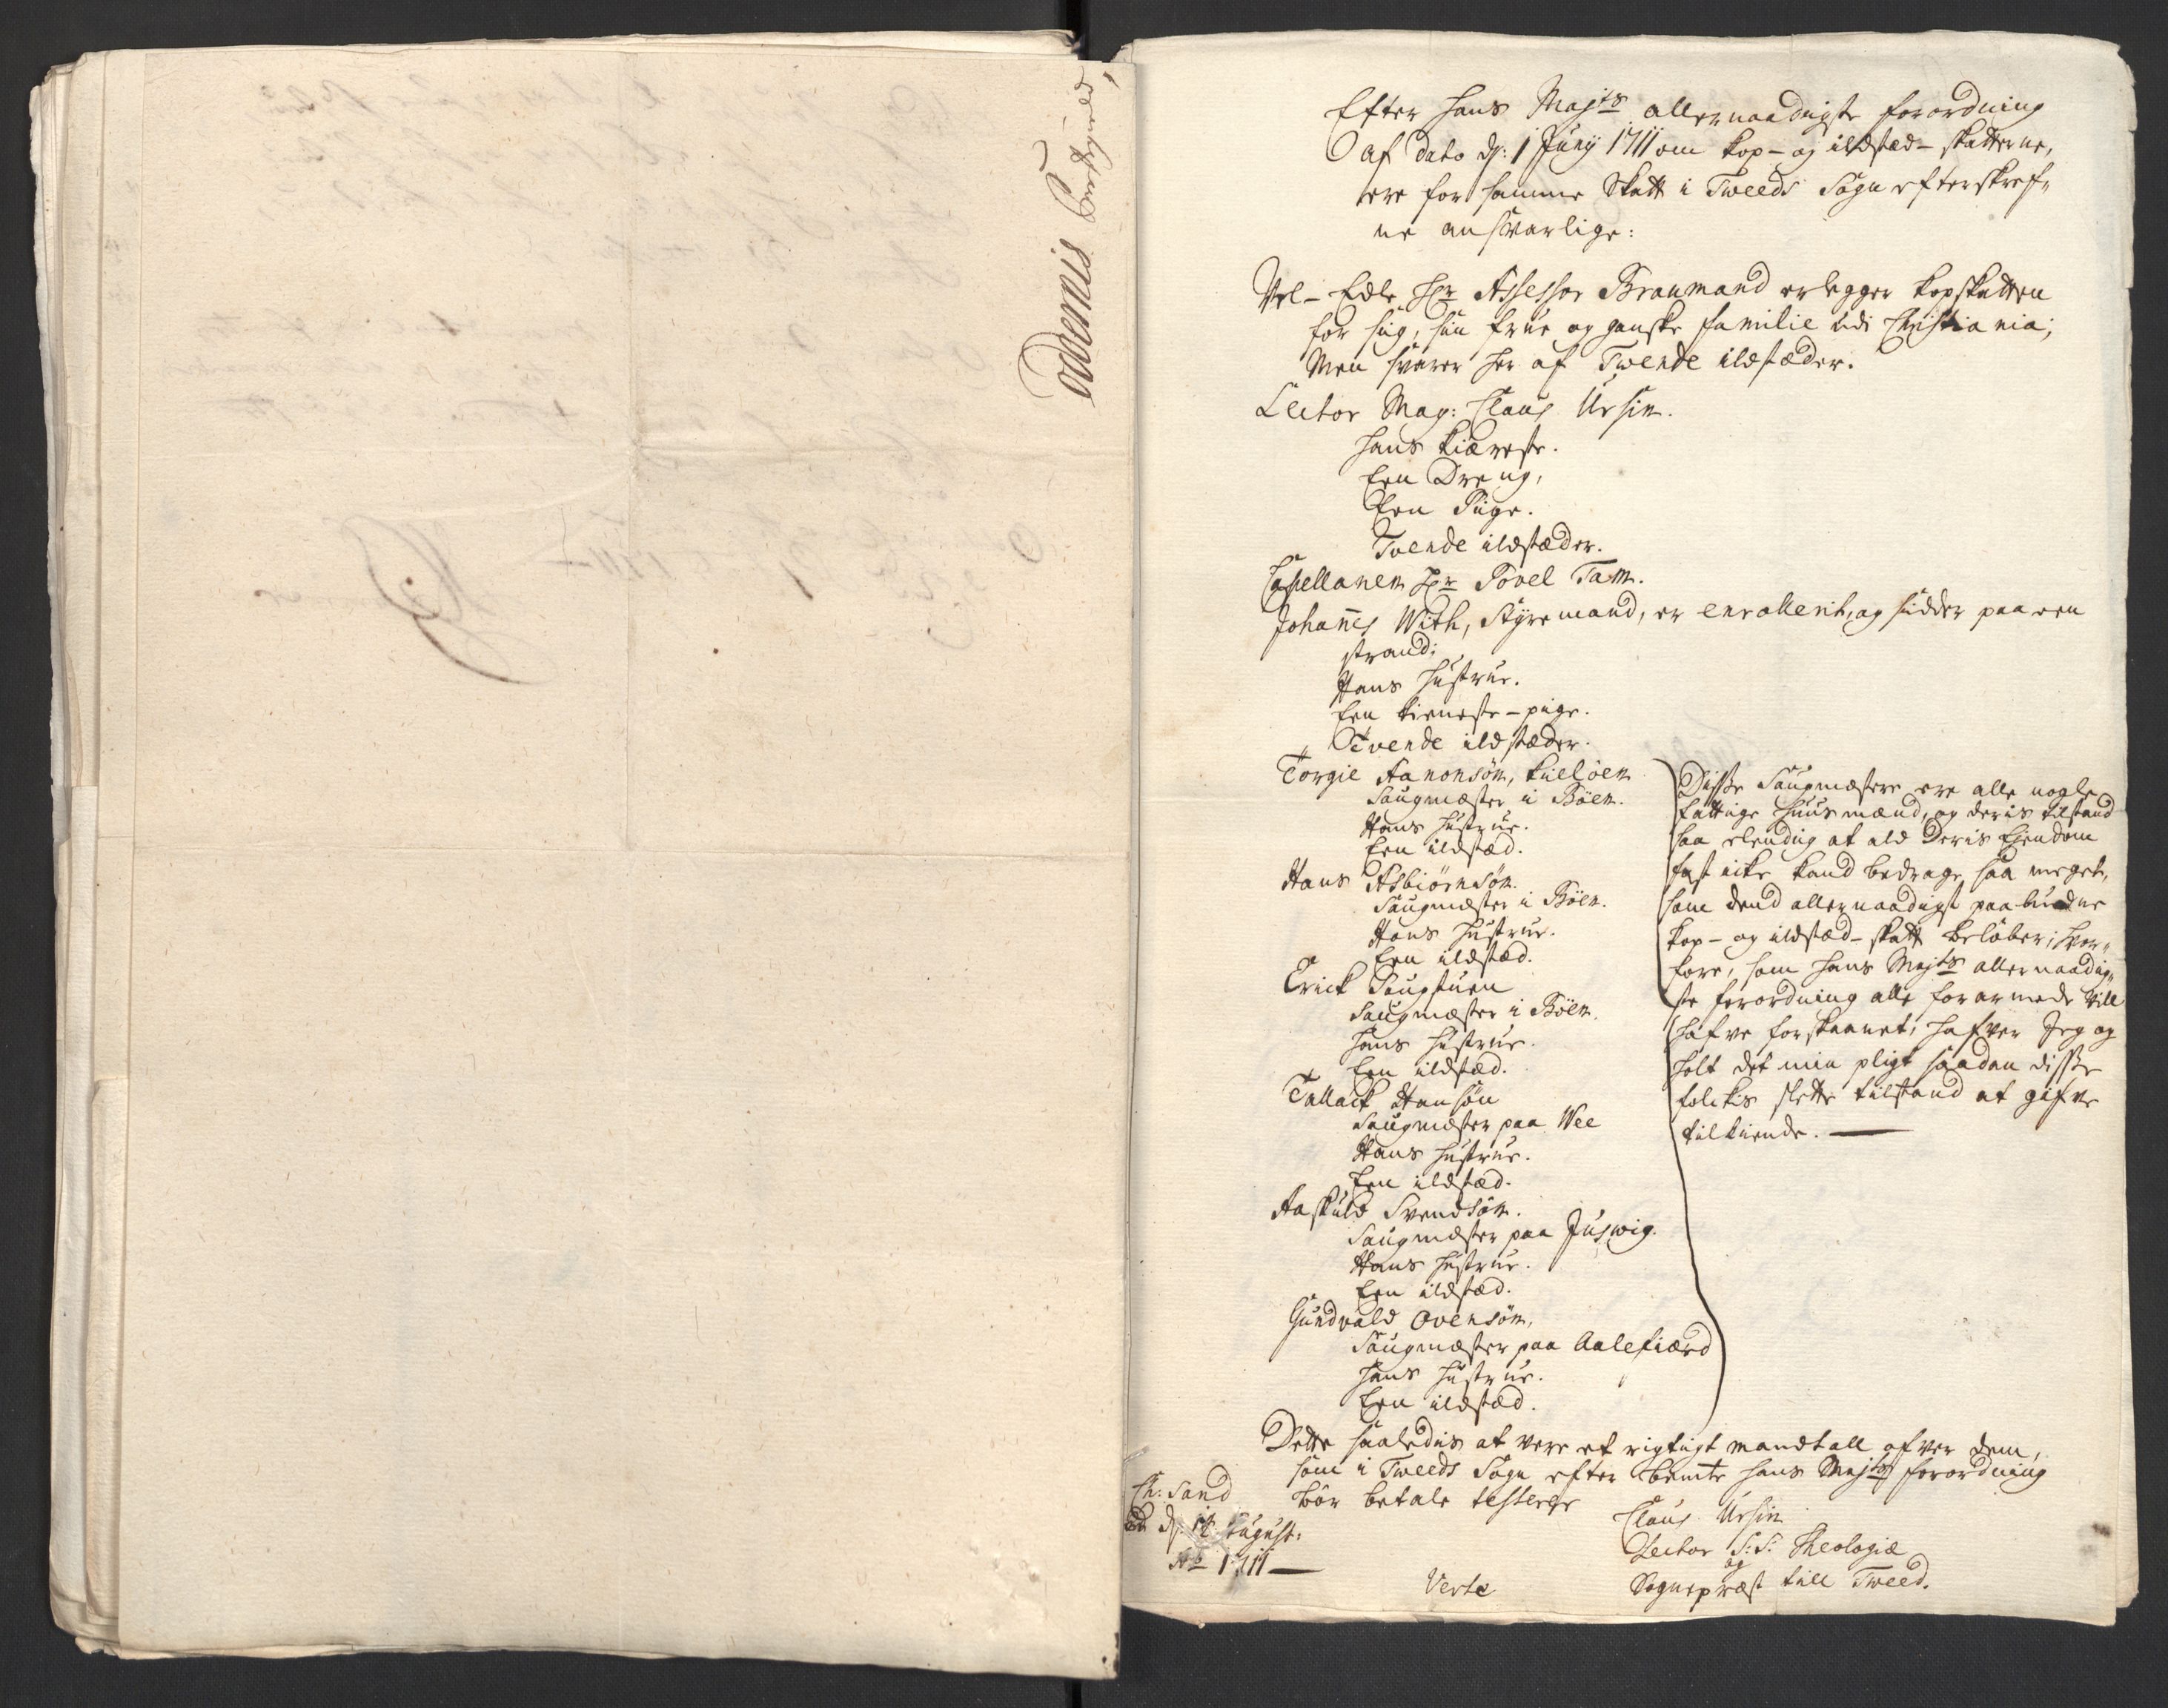 Oddernis Præstegield
Efter Hans Majts allernaadigste forordning
af dato d: 1 Junij 1711 om kop- og ildsted-skatterne,
ere for samme Skatt i Tweeds Sogn efterskref„
ne ansvarlige:
Vel-Edle Hr Assessor Braumand erlegger kopskatten
for sig, sin frue og ganske familie udi Christiania;
Men svarer her af Tvende ildstæder.
Lector Mag: Claus Ursin.
Hans kiæreste.
Een Dreng,
Een Pige.
Tvende ildstæder.
Capellanen Hr Povel Tam.
Johannes With, Styremand, er enrollerit, og sidder paa een
strand;
Hans Hustrue.
Een tieneste-pige.
Tvende ildstæder.
Torgie Aanonsøn,
Saugmæster i Bøen.
Hans Hustrue.
Een ildsted.
Hans Asbiørnsøn.
Saugmæster i Bøen.
Hans Hustrue.
Een ildsted.
Erick Saugstuen
Saugmæster i Bøen.
Hans Hustrue.
Een ildsted.
Tallack Hansøn
Saugmæster paa Wee
Hans Hustrue.
Een ildsted.
Aaskuld Svendsøn.
Saugmæster paa Juswig.
Hans Hustrue.
Een ildsted.
Gundvald Ovensøn,
Saugmæster paa Aalefiærd
Hans Hustrue.
Een ildsted.
Disse Saugmæstere ere alle nogle
fattige Huusmænd, og deris tilstand
saa elendig at ald Deris Ejendom
fast icke kand bedrage saa meget,
som dend allernaadigst paabudne
kop- og ildsted-skatt beløber; hvor„
fore, som Hans Majts allernaadig„
ste forordning alle forarmede vill
hafve forskaanet, hafver Jeg og
holt det min pligt saadan disse
folckis slette tilstand at gifve
tilkiende.
Dette saaledis at vere et rigtigt mandtall ofver dem,
som i Tweeds Sogn efter bemte Hans Majts forordning
bør betale testerer
Ch: Sand
d: August:
Ao 1711
Claus Ursin
Lector S: S: Theologiæ
og
Sognepræst till Tweed.
Verte